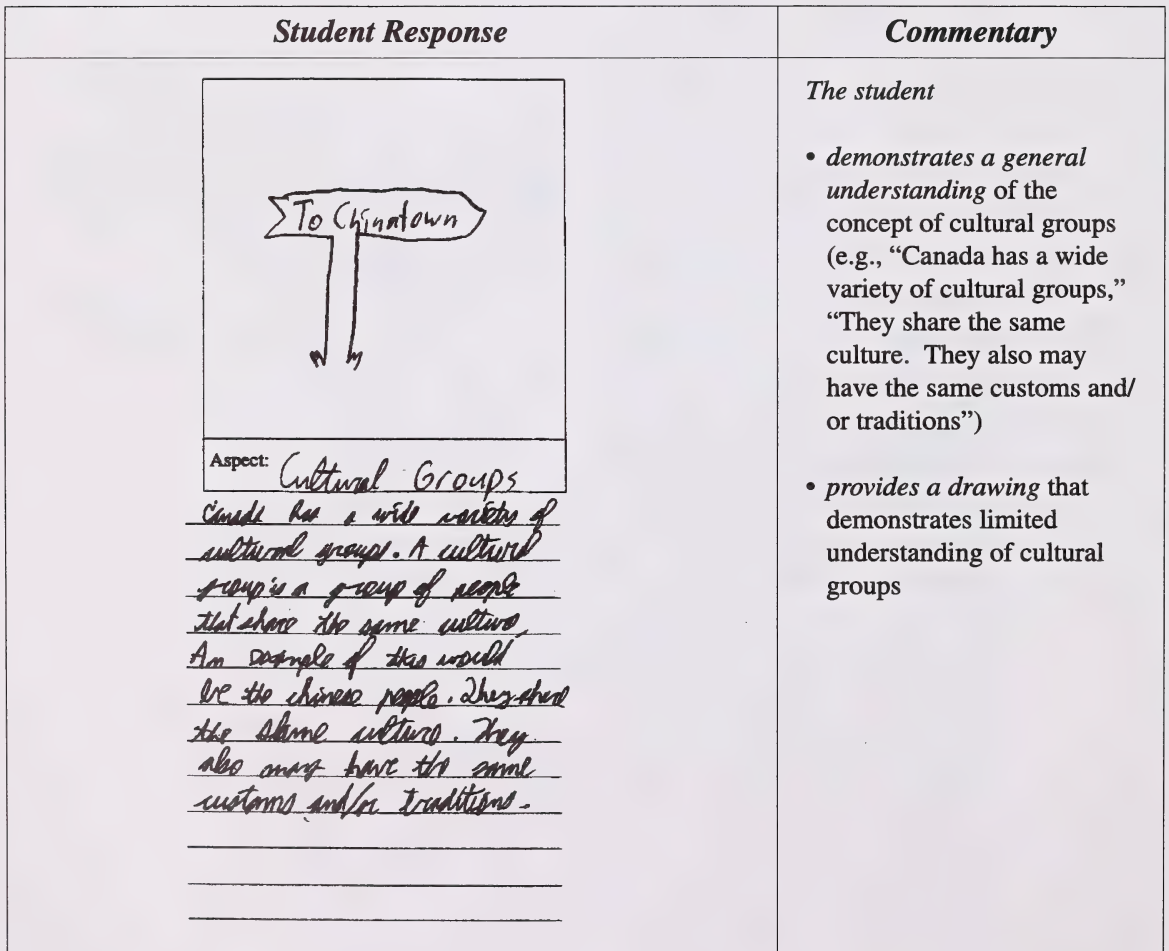 Student Response
Commentary
To Chinatown
Aspect: Cultural Groups
Canada has a wide variety of
cultural groups. A cultural
group is a group of people
that share the same culture.
An example of this would
be the chinese people. They share
the same culture. They
also may have the same
customs and/or traditions.
The student
• demonstrates a general
understanding of the
concept of cultural groups
(e.g., “Canada has a wide
variety of cultural groups,”
“They share the same
culture. They also may
have the same customs and/
or traditions”)
• provides a drawing that
demonstrates limited
understanding of cultural
groups